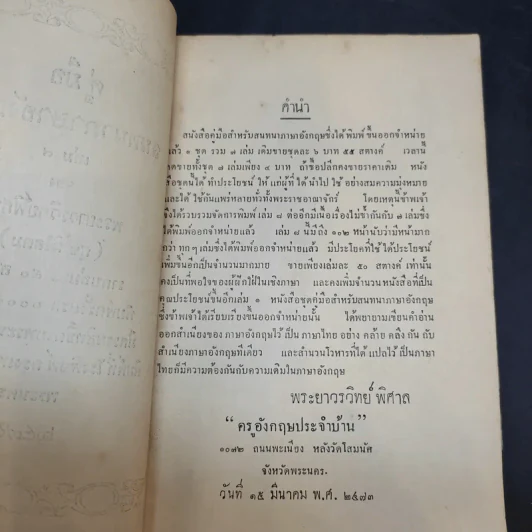 คำนำ
สนังสือคู่มือสำหรับสนทนาภาษาอังกฤษซึ่งได้พิมพ์ขึ้นออกจำหน่าย
แล้ว ๑ ชุด รวม ๗ เล่ม เดิมขายชุดละ ๖ บาท ๕๕ สตางค์ เวลานี้
ลดขายทั้งชุด ๗ เล่มเพียง ๔ บาท ถ้าซื้อปลีกคงขายราคาเดิม หนัง
สือชุดนี้ได้ ทำประโยชน์ ให้ แก่ผู้ที่ ได้ นำไป ใช้ อย่างสมความมุ่งหมาย
และได้ ใช้กันแพร่หลายทั่วทั้งพระราชอาณาจักร์ โดยเหตุนี้ข้าพเจ้า
จึงได้รวบรวมจัดการพิมพ์ เล่ม ๘ ต่ออีกมีเนื้อเรื่องไม่ซ้ำกันกับ ๗ เล่มซึ่ง
ได้พิมพ์ออกจำหน่ายแล้ว เล่ม ๘ นี้มีถึง ๑๐๒ หน้านับว่ามีหน้ามาก
กว่า ทุก ๆ เล่มซึ่งได้พิมพ์ออกจำหน่ายแล้ว มีประโยคที่ใช้ได้ประโยชน์
เพิ่มขึ้นอีกเป็นจำนวนมากมาย ขายเพียงเล่มละ ๕๐ สตางค์ เท่านั้น
คงเป็นที่พอใจของผู้ฝักใฝ่ในเชิงภาษา และคงเพิ่มจำนวนหนังสือที่เป็น
คุณประโยชน์ขึ้นอีกเล่ม ๑ หนังสือชุดคู่มือสำหรับสนทนาภาษาอังกฤษ
ซึ่งข้าพเจ้าได้เรียบเรียงขึ้นออกจำหน่ายนั้น ได้พยายามเขียนคำอ่าน
ออกสำเนียงของ ภาษาอังกฤษไว้ เป็น ภาษาไทย อย่าง คล้าย คลึง กัน กับ
สำเนียงภาษาอังกฤษทีเดียว และสำนวนโวหารที่ได้ แปลไว้ เป็นภาษา
ไทยก็มีความต้องกันกับความเดิมในภาษาอังกฤษ
พระยาวรวิทย์ พิศาล
“ครูอังกฤษประจำบ้าน”
๑๐๗๒ ถนนพะเนียง หลังวัดโสมนัศ
จังหวัดพระนคร.
วันที่ ๑๕ มีนาคม พ.ศ. ๒๔๗๓